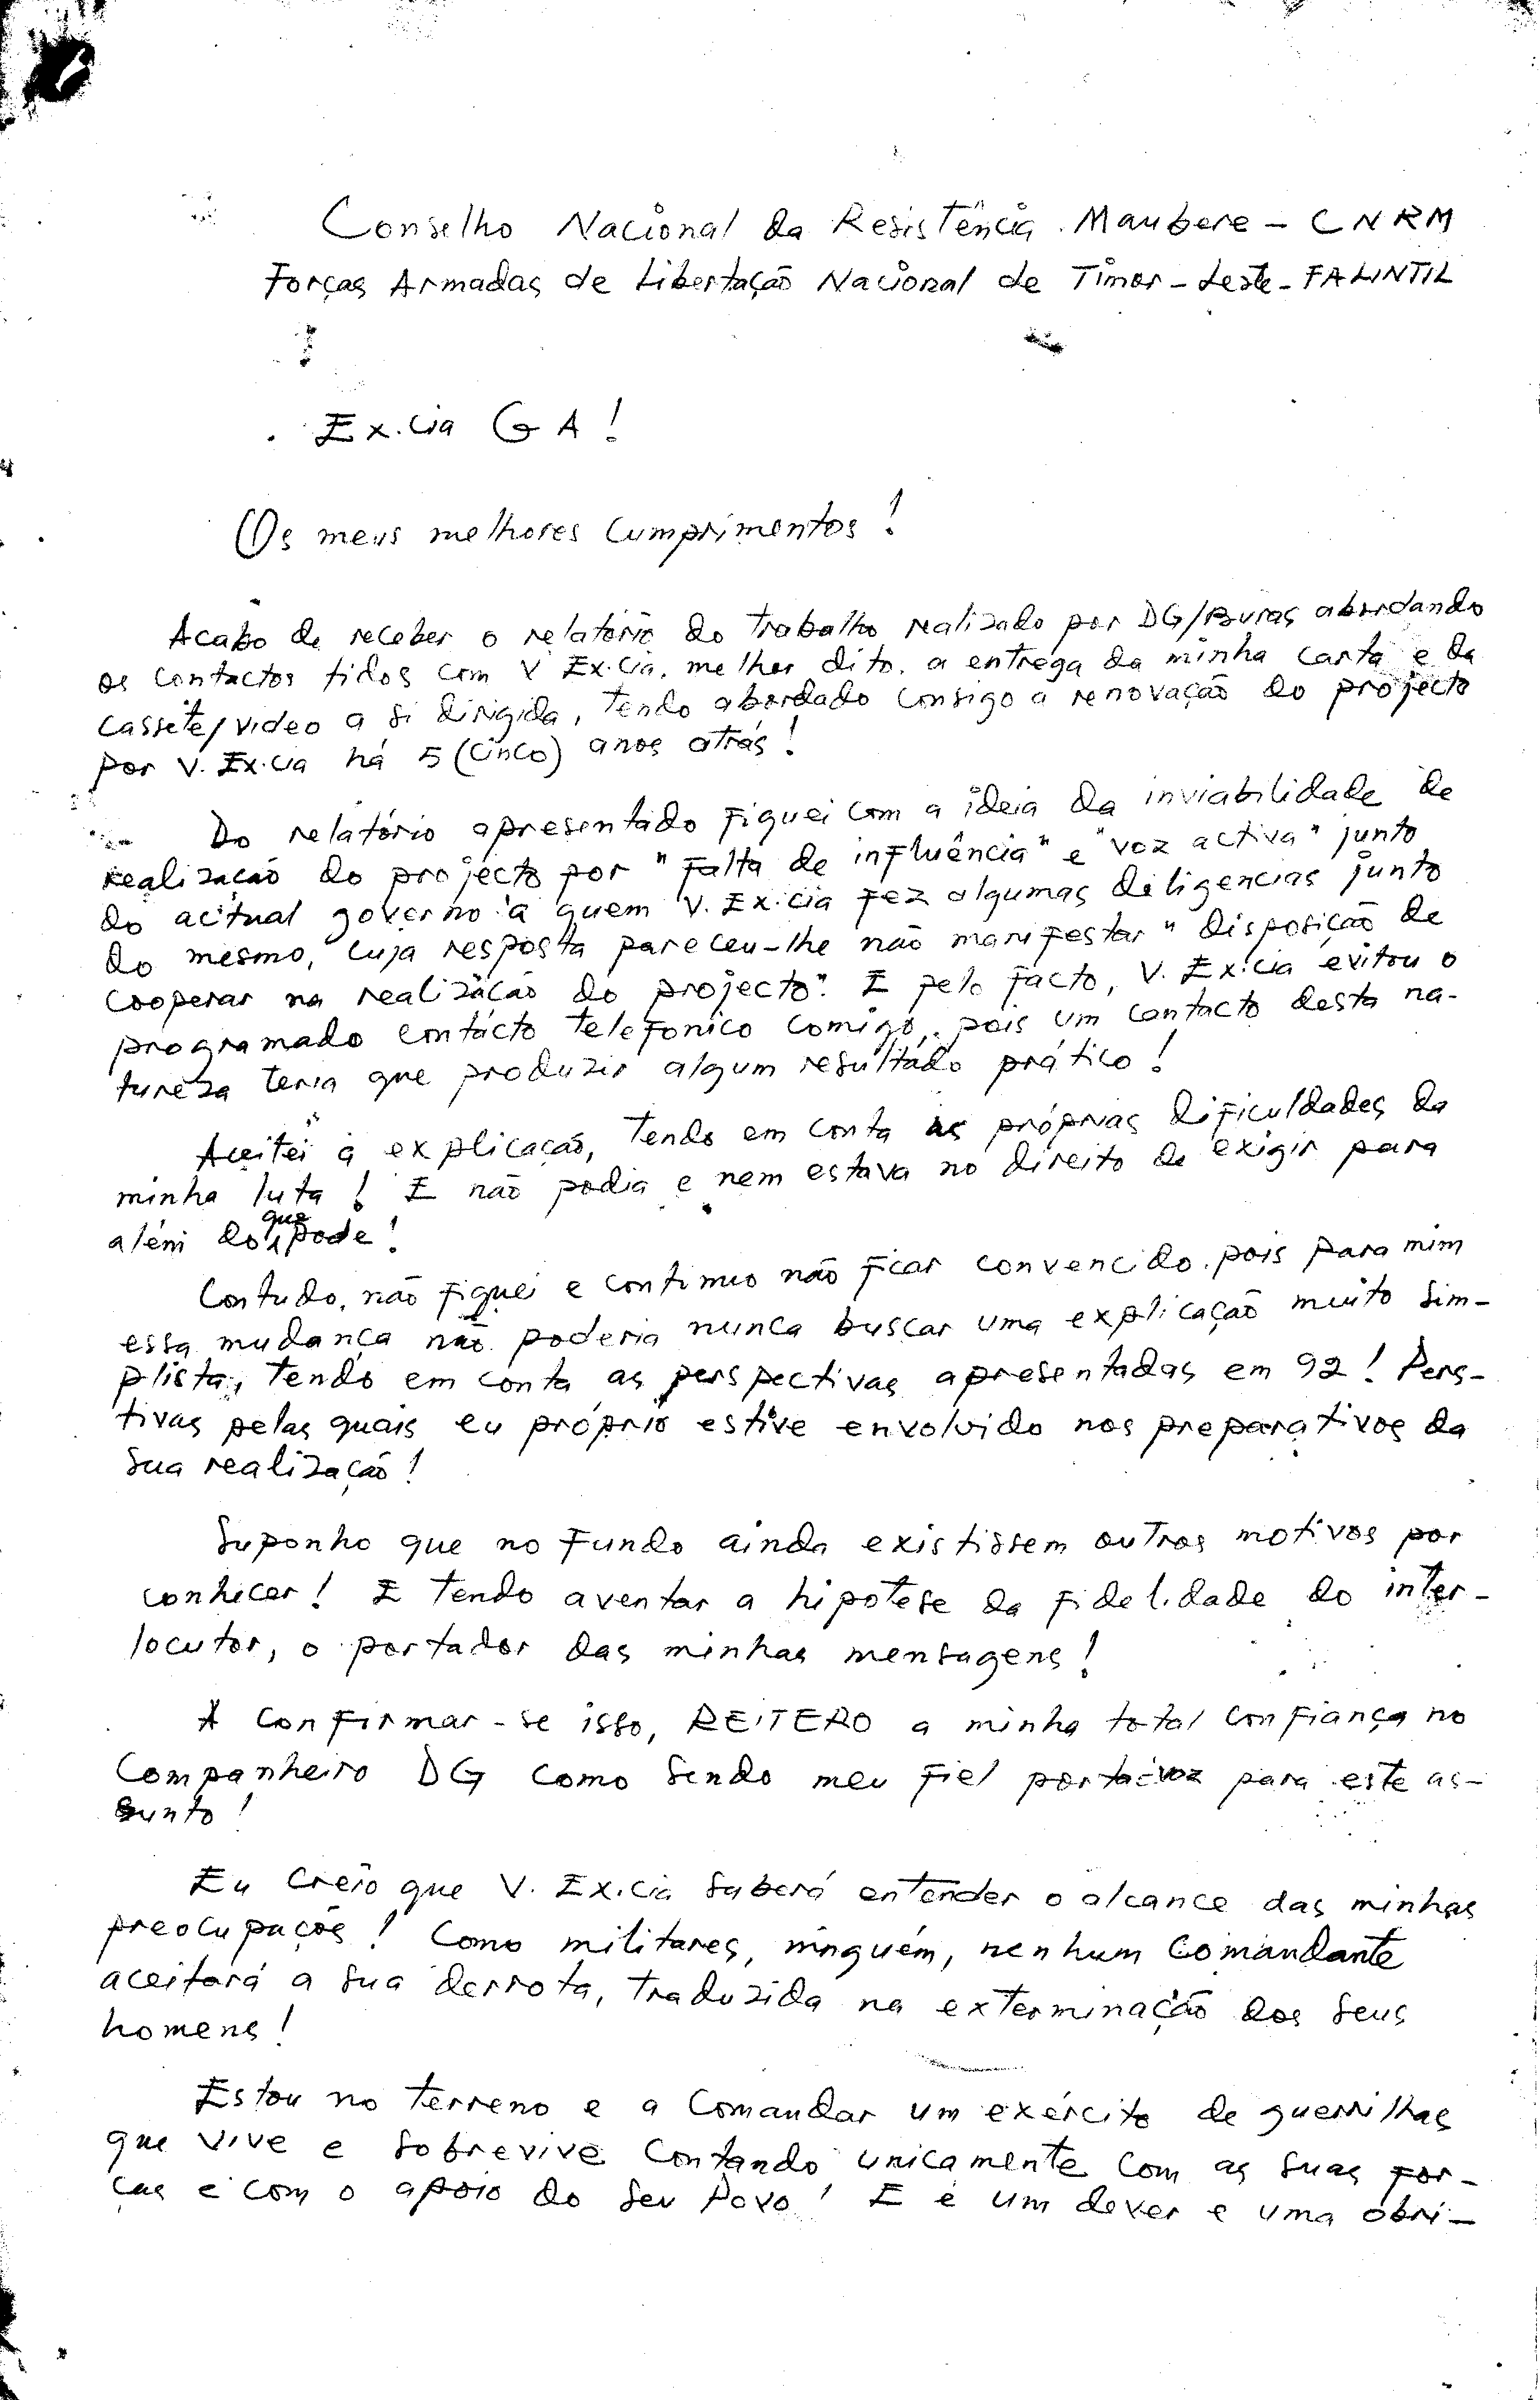 Conselho Nacional da Resistência Maubere - CNRM
Forças Armadas de Libertação Nacional de Timor-Leste-FALINTIL
Ex.cia GA!
Os meus melhores cumprimentos!
Acabo de receber o relatório do trabalho realizado por DG/Buras abordando
os contactos tidos com V Ex.cia, melhor dito, a entrega da minha carta e da
cassete/video a si dirigida, tendo abordado consigo a renovação do projecto
por V. Ex.cia há 5 (cinco) anos atrás!
Do relatório apresentado fiquei com a ideia da inviabilidade de
realização do projecto por "falta de influência" e "voz activa" junto
do actual governo a quem V. Ex.cia fez algumas diligencias junto
do mesmo, cuja resposta pareceu-lhe não manifestar "disposição de
cooperar na realização do projecto". E pelo facto, V. Ex.cia evitou o
programado contacto telefonico comigo, pois um contacto desta na-
tureza teria que produzir algum resultado prático!
Aceitei a explicação, tendo em conta as próprias dificuldades da
minha luta! E não podia e nem estava no direito de exigir para
além do que pode!
Contudo, não fiquei e continuo não ficar convencido, pois para mim
essa mudança não poderia nunca buscar uma explicação muito sim-
plista, tendo em conta as perspectivas apresentadas em 92! Pers-
tivas pelas quais eu próprio estive envolvido nos preparativos da
sua realização!
Suponho que no fundo ainda existissem outros motivos por
conhecer! E tendo aventar a hipotese da fidelidade do inter-
locutor, o portador das minhas mensagens!
A confirmar-se isso, REITERO a minha total confiança no
Companheiro DG como sendo meu fiel porta-voz para este as-
sunto!
Eu creio que V. Ex.cia saberá entender o alcance das minhas
preocupações! Como militares, ninguém, nenhum Comandante
aceitará a sua derrota, traduzida na exterminação dos seus
homens!
Estou no terreno e a comandar um exército de guerrilhas
que vive e sobrevive contando unicamente com as suas for-
ças e com o apoio do seu Povo! E é um dever e uma obri-